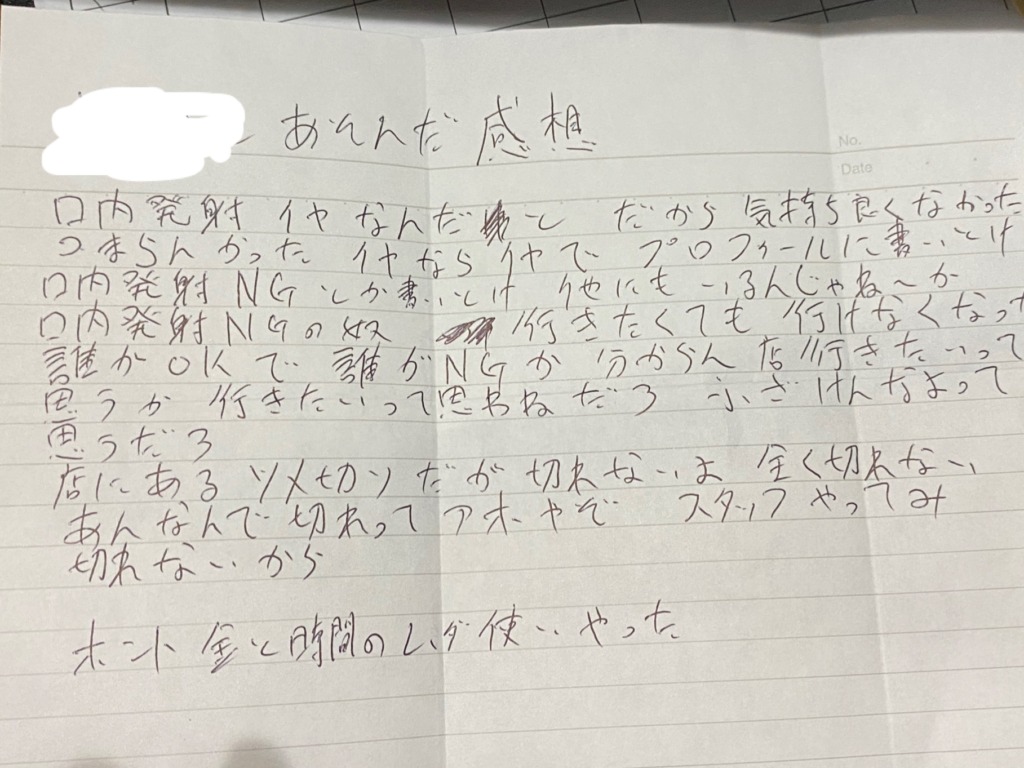 あそんだ 感想
No.
Date
口内発射 イヤなんだと だから 気持ち良くなかった
つまらんかった イヤなら イヤで プロフィールに書いとけ
口内発射 NG とか書いとけ 他にも いるんじゃね〜か
口内発射NGの奴 行きたくても 行けなくなった
誰がOKで 誰がNGか 分からん 店 行きたいって
思うか 行きたいって思わねだろ ふざけんなよって
思うだろ
店にある ツメ切りだが 切れないよ 全く切れない
あんなんで 切れって アホやぞ スタッフ やってみ
切れないから
ホント 金と時間のムダ使いやった